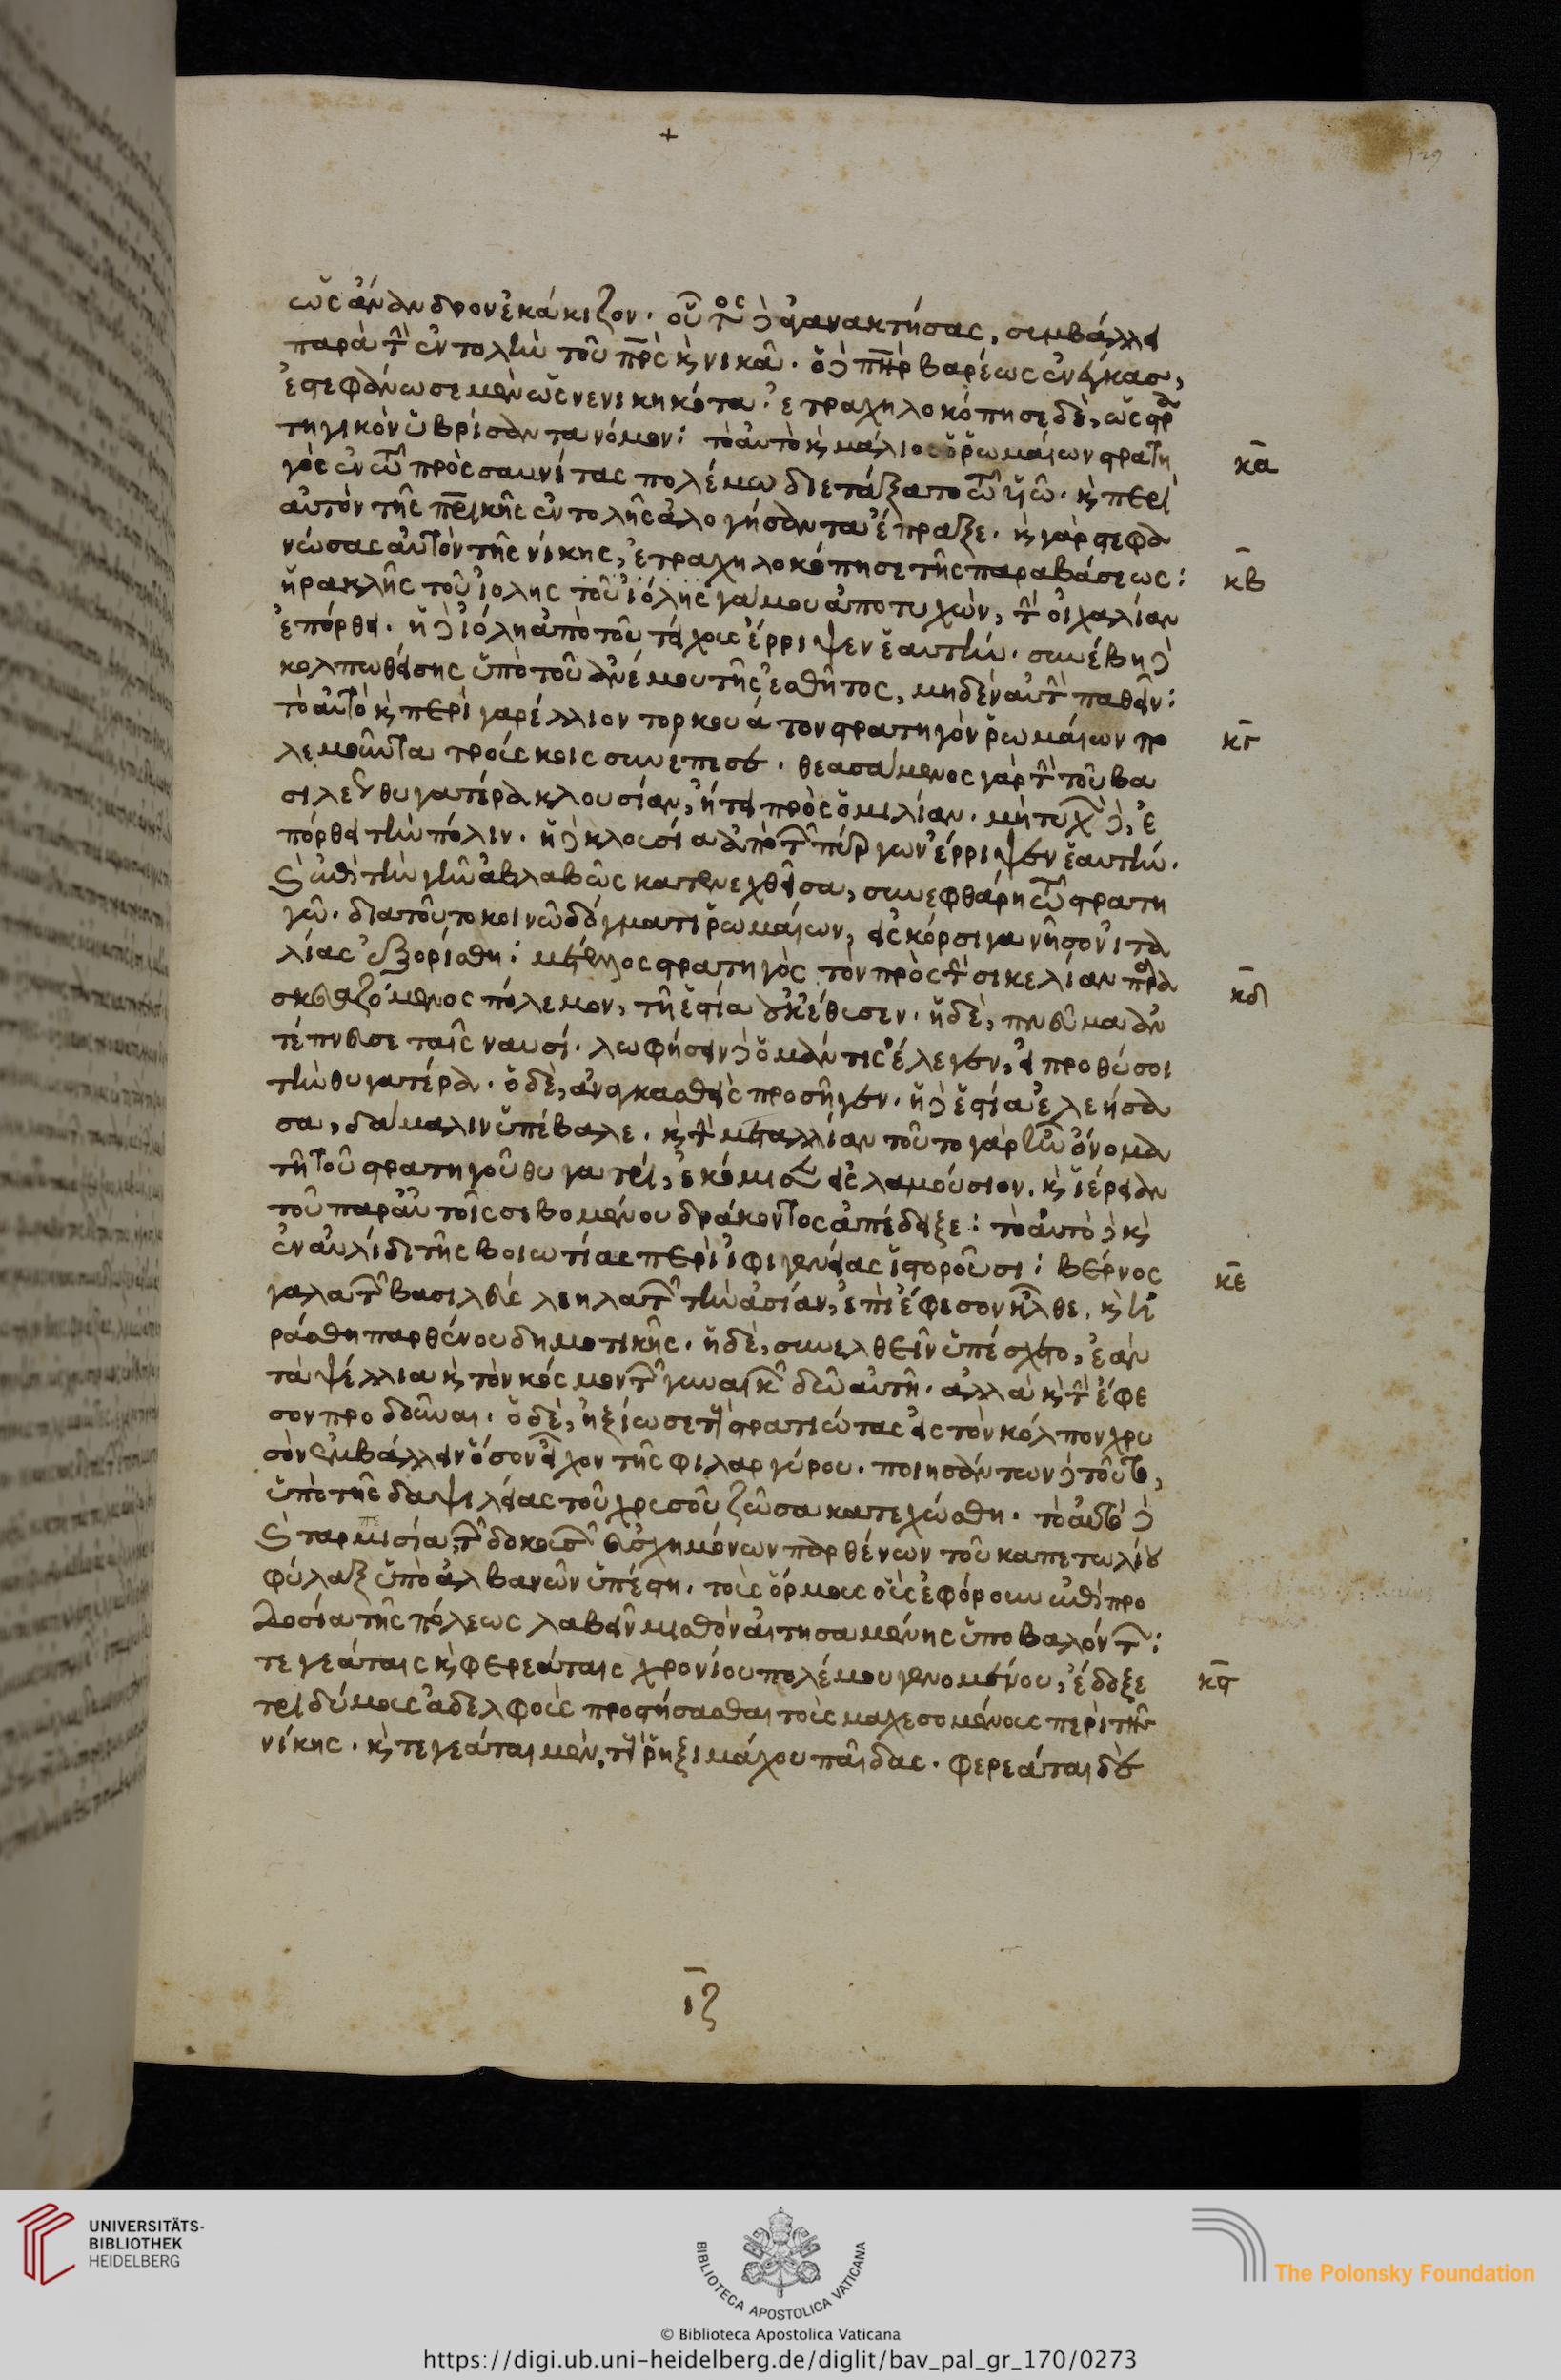 +
129
ὡς ἄνανδρον ἐκάκιζον. οὗτος δὲ ἀγανακτήσας, συμβάλλει
παρὰ τὴν ἐντολὴν τοῦ πρς καὶ νικᾶ. ὁ δὲ πηρ βαρέως ἐνέγκας,
ἐστεφάνωσε μὲν ὡς νενικηκότα. ἐτραχηλοκόπησε δὲ, ὡς στρα
τηγικὸν ὑβρίσαντα νόμον: τὸ αὐτὸ καὶ μάλιος ὁ ῥωμαίων στρατη
γὸς ἐν τῶ πρὸς σαυνίτας πολέμω διετάξατο τῶ υἱῶ. καὶ περὶ
αὐτὸν τῆς πρικῆς ἐντολῆς ἀλογήσαντα ἔπραξε. καὶ γὰρ στεφα
νώσας αὐτὸν τῆς νίκης, ἐτραχηλοκόπησε τῆς παραβάσεως:
ἡρακλῆς τοῦ ἰόλης τοῦ ἰόλης γάμου ἀποτυχὼν, τὴν οἰχαλίαν
ἐπόρθει. ἡ δὲ ἰόλη ἀπὸ τοῦ τείχους ἔρριψεν ἑαυτήν. συνέβη δὲ
κολπωθείσης ὑπὸ τοῦ ἀνέμου τῆς ἐσθῆτος, μηδὲν αὐτὴν παθεῖν:
τὸ αὐτὸ καὶ περὶ γαρέλλιον τορκουάτον στρατηγὸν ῥωμαίων πο
λεμοῦντα τρούσκοις συνέπεσε. θεασάμενος γὰρ τὴν τοῦ βα
σιλέως θυγατέρα κλουσίαν, ἤτει πρὸς ὁμιλίαν. μὴ τυχὼν δὲ, ἐ
πόρθει τὴν πόλιν. ἡ δὲ κλουσία ἀπὸ τῶν πύργων ἔρριψεν ἑαυτήν.
καὶ ἐπὶ τὴν γῆν ἀβλαβῶς κατενεχθεῖσα, συνεφθάρη τῶ στρατη
γῶ. διὰ τοῦτο κοινῶ δόγματι ῥωμαίων, εἰς κόρσιγα νῆσον ἰτα
λίας ἐξορίσθη: μέτελλος στρατηγὸς τὸν πρὸς τὴν σικελίαν παρα
σκευαζόμενος πόλεμον, τῆ ἑστία οὐκ ἔθυσεν. ἡ δὲ, πνεῦμα ἀν
τέπνευσε ταῖς ναυσί. λωφήσειν δὲ ὁ μάντις ἔλεγεν, εἰ προθύσοι
τὴν θυγατέρα. ὁ δὲ, ἀναγκασθεὶς προσῆγεν. ἡ δὲ ἑστία ἐλεήσα
σα, δάμαλιν ὑπέβαλε. καὶ τὴν μεταλλίαν τοῦτο γὰρ ἦν ὄνομα
τῆ τοῦ στρατηγοῦ θυγατρὶ, ἐκόμισεν εἰς λαμούσιον. καὶ ἱέρειαν
τοῦ παρ᾽ αὐτοῖς σεβομένου δράκοντος ἀπέδειξε: τὸ αὐτὸ δὲ καὶ
ἐν αὐλίδι τῆς βοιωτίας περὶ ἰφιγενείας ἱστοροῦσι: βέρνος
γαλατῶν βασιλεὺς λεηλατῶν τὴν ἀσίαν, ἐπὶ ἔφεσον ἦλθε. καὶ ἠ
ράσθη παρθένου δημοτικῆς. ἡ δὲ, συνελθεῖν ὑπέσχετο, ἐὰν
τὰ ψέλλια καὶ τὸν κόσμον τῶν γυναικῶν δῶ αὐτῆ. ἀλλὰ καὶ τὴν ἔφε
σον προδοῦναι. ὁ δὲ, ἠξίωσε τοὺς στρατιώτας εἰς τὸν κόλπον χρυ
σὸν ἐμβάλλειν ὅσον εἶχον τῆς φιλαργύρου. ποιησάντων δὲ τοῦτο,
ὑπὸ τῆς δαψιλείας τοῦ χρυσοῦ ζῶσα κατεχώσθη. τὸ αὐτὸ δὲ
καὶ ταρπισία, τῶν δοκουσῶν εὐσχημόνων παρθένων τοῦ καπετωλίου
φύλαξ ὑπὸ ἀλβανῶν ὑπέστη. τοὺς ὅρμους οὓς ἐφόρουν ἐπὶ προ
δοσία τῆς πόλεως λαβεῖν μισθὸν αἰτησαμένης ὑποβαλόντων:
τεγεάταις καὶ φερεάταις χρονίου πολέμου γενομένου, ἔδοξε
τριδύμους ἀδελφοὺς προστήσασθαι τοὺς μαχεσομένους περὶ τῆς
νίκης. καὶ τεγεάται μὲν, τοὺς ῥηξιμάχου παῖδας. φερεάται δὲ
κα
κβ
κγ
κδ
κε
κϛ
ιζ
UNIVERSITÄTS-
BIBLIOTHEK
HEIDELBERG
BIBLIOTECA APOSTOLICA VATICANA
The Polonsky Foundation
© Biblioteca Apostolica Vaticana
https://digi.ub.uni-heidelberg.de/diglit/bav_pal_gr_170/0273